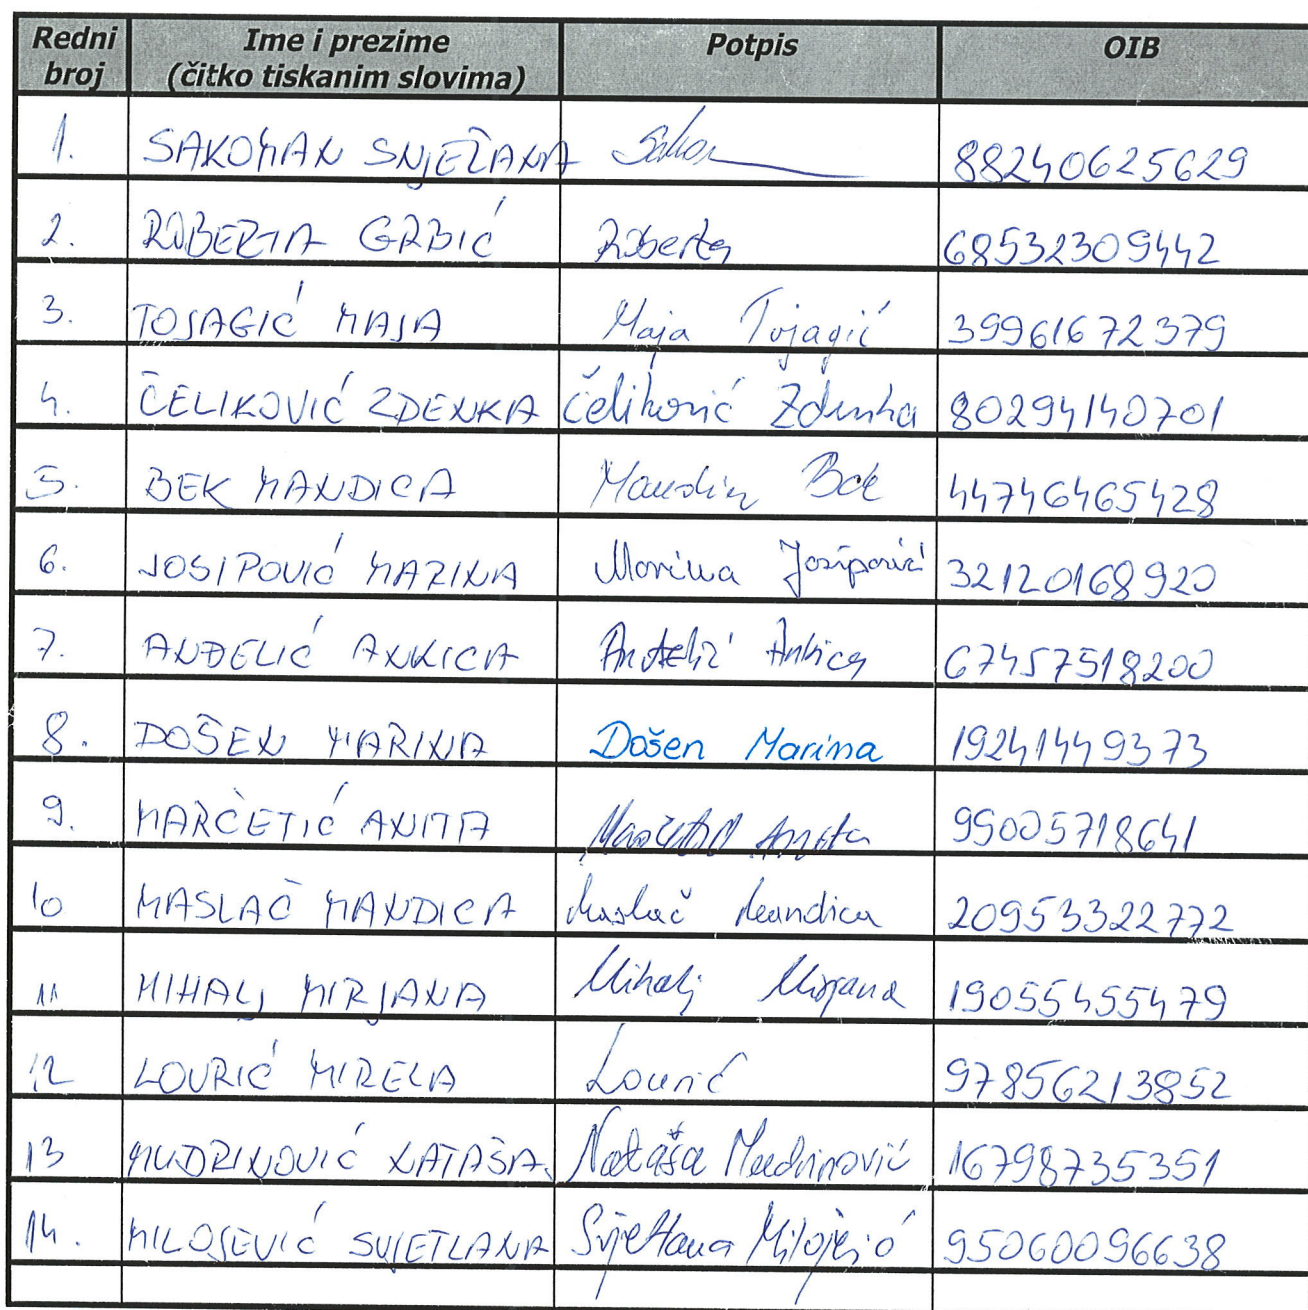 Redni broj Ime i prezime (čitko tiskanim slovima) Potpis OIB
1. SAKOMAN SNJEŽANA Sakom 88240625629
2. ROBERTA GRBIĆ Roberta 68532309442
3. TOJAGIĆ MAJA Maja Tojagić 39961672379
4. ČELIKOVIĆ ZDENKA Čeliković Zdenka 80294140701
5. BEK MANDICA Mandica Bek 44746465428
6. JOSIPOVIĆ MARINA Marina Josipović 32120168920
7. ANĐELIĆ ANKICA Anđelić Ankica 67457518200
8. DOŠEN MARINA Došen Marina 19241449373
9. MARČETIĆ ANITA Marčetić Anita 99005718641
10 MASLAČ MANDICA Maslač Mandica 20953322772
11 MIHALJ MIRJANA Mihalj Mirjana 19055455479
12 LOVRIĆ MIRELA Lovrić 97856213852
13 MUDRINOVIĆ NATAŠA Nataša Mudrinović 16798735351
14. MILOŠEVIĆ SVJETLANA Svjetlana Milošević 95060096638